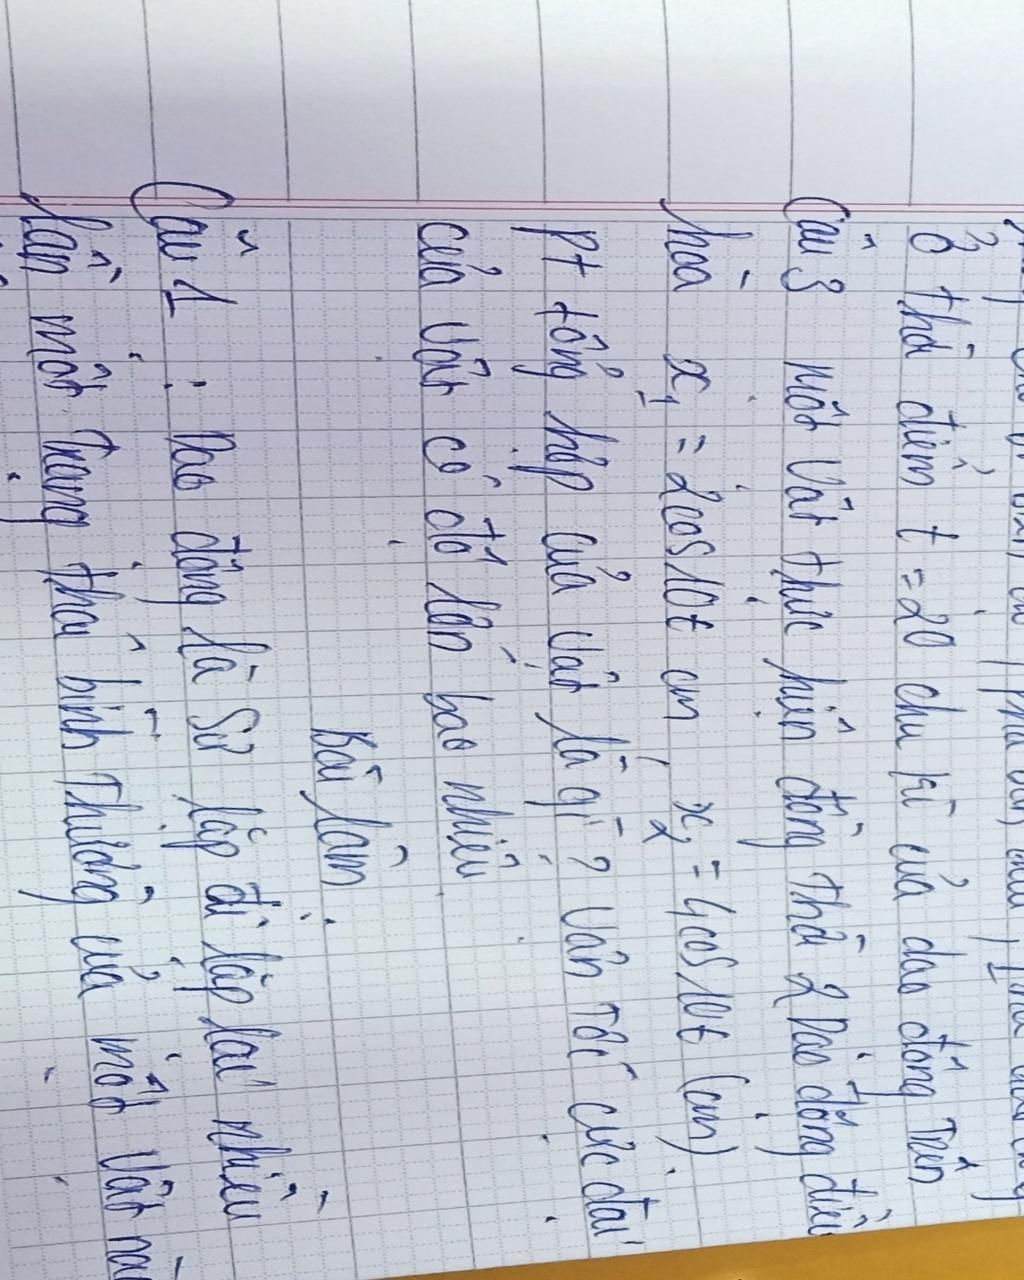 ở thời điểm t = 20 chu kì của dao động trên
Câu 3 một vật thực hiện đồng thời 2 dao động điều
hòa x₁ = 2cos10t cm, x₂ = 4cos10t (cm)
Pt tổng hợp của vật là gì? Vận tốc cực đại
của vật có độ lớn bao nhiêu
Bài làm
Câu 1: Dao động là sự lặp đi lặp lại nhiều
lần một trạng thái bình thường của một vật